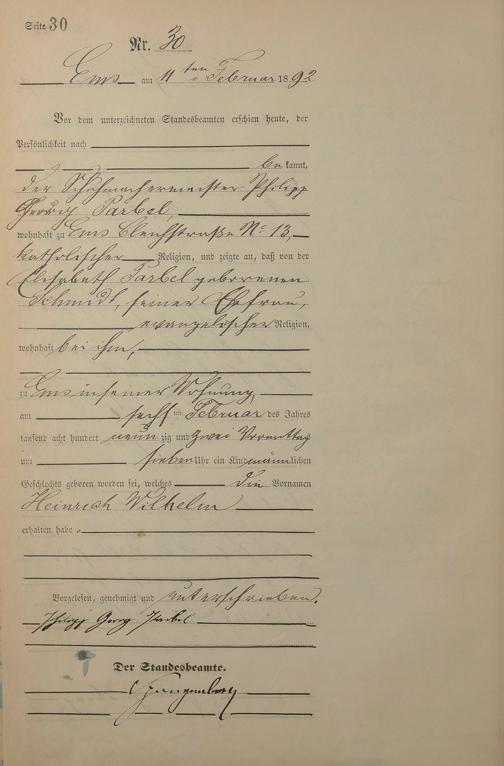 Seite 30
Nr. 30
Ems am 11 ten Februar 1892
Vor dem unterzeichneten Standesbeamten erschien heute, der
Persönlichkeit nach
be kannt,
der Schuhmachermeister Philipp
Georg Parbel,
wohnhaft zu Ems Bleichstraße No 13,
katholischer Religion, und zeigte an, daß von der
Elisabeth Parbel geborenen
Schmidt, seiner Ehefrau,
evangelischer Religion,
wohnhaft bei ihm,
zu Ems in seiner Wohnung,
am sechs ten Februar des Jahres
tausend acht hundert neun zig und zwei Vormittag
um sieben Uhr ein Kind männlichen
Geschlechts geboren worden sei, welches die Vornamen
Heinrich Wilhelm
erhalten habe.
Vorgelesen, genehmigt und unterschrieben.
Philipp Georg Parbel
Der Standesbeamte.